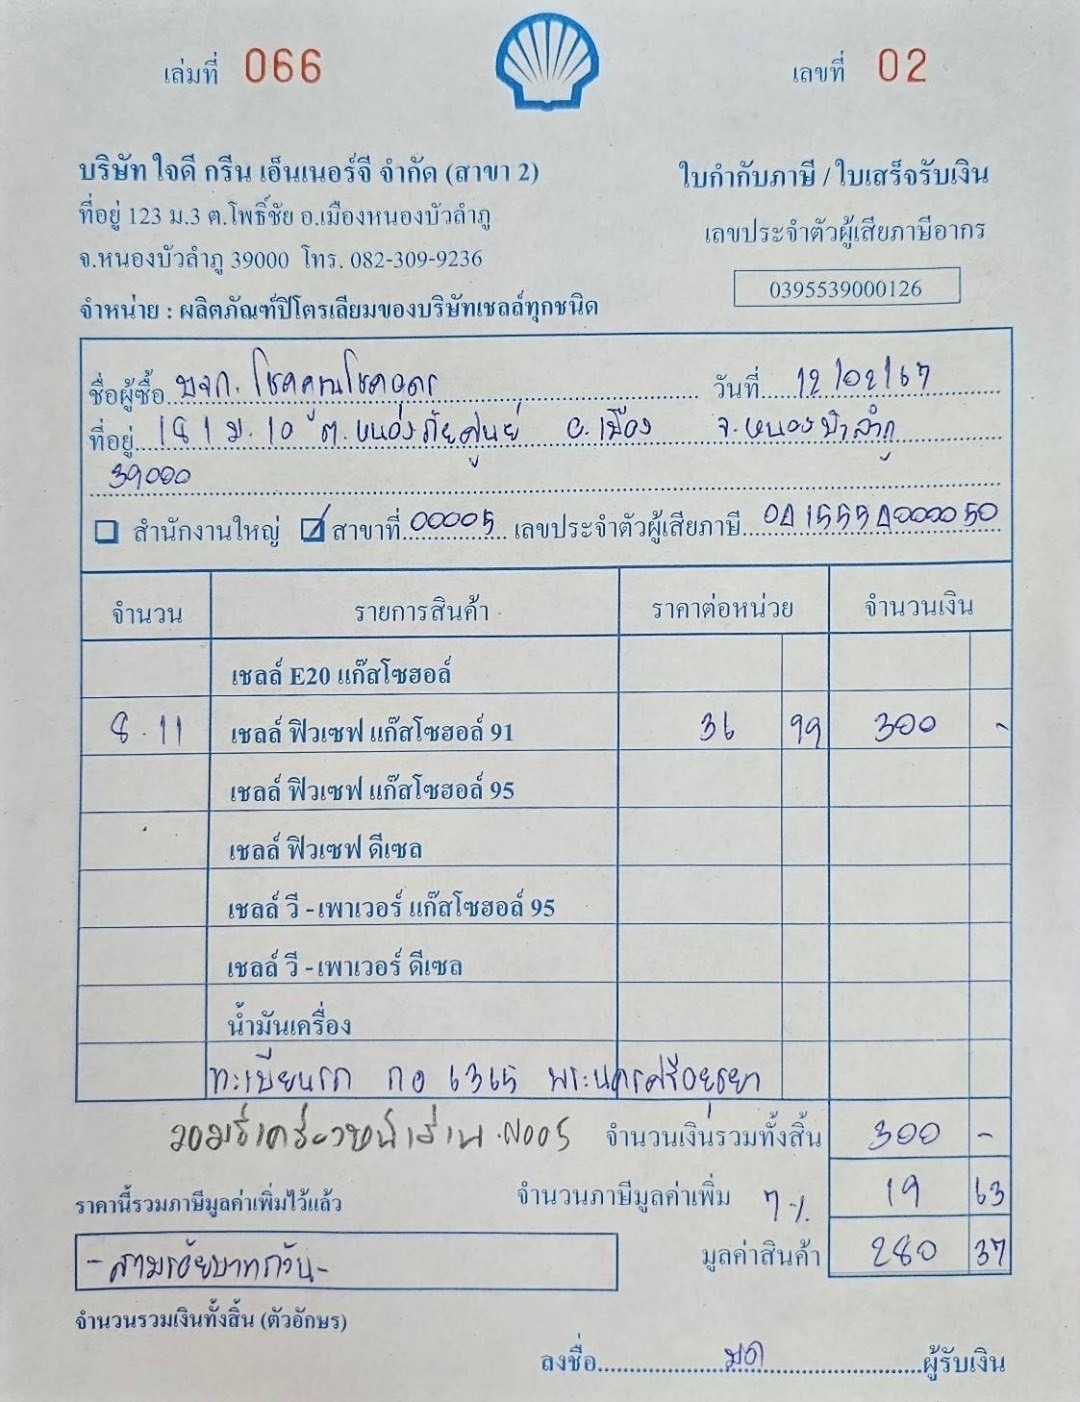 เล่มที่ 066
เลขที่ 02
บริษัท ใจดี กรีน เอ็นเนอร์จี จำกัด (สาขา 2)
ใบกำกับภาษี / ใบเสร็จรับเงิน
ที่อยู่ 123 ม.3 ต.โพธิ์ชัย อ.เมืองหนองบัวลำภู
เลขประจำตัวผู้เสียภาษีอากร
จ.หนองบัวลำภู 39000 โทร. 082-309-9236
0395539000126
จำหน่าย : ผลิตภัณฑ์ปิโตรเลียมของบริษัทเชลล์ทุกชนิด
ชื่อผู้ซื้อ บจก. โชคคูณโชคอุดร วันที่ 12/02/67
ที่อยู่ 181 ม.10 ต.หนองภัยศูนย์ อ.เมือง จ.หนองบัวลำภู
39000
สำนักงานใหญ่ สาขาที่ 00005 เลขประจำตัวผู้เสียภาษี
จำนวน รายการสินค้า ราคาต่อหน่วย จำนวนเงิน
เชลล์ E20 แก๊สโซฮอล์
8.11 เชลล์ ฟิวเซฟ แก๊สโซฮอล์ 91 36 99 300 -
เชลล์ ฟิวเซฟ แก๊สโซฮอล์ 95
เชลล์ ฟิวเซฟ ดีเซล
เชลล์ วี - เพาเวอร์ แก๊สโซฮอล์ 95
เชลล์ วี - เพาเวอร์ ดีเซล
น้ำมันเครื่อง
ทะเบียนรถ กอ 6365 พระนครศรีอยุธยา
N005 จำนวนเงินรวมทั้งสิ้น 300 -
ราคานี้รวมภาษีมูลค่าเพิ่มไว้แล้ว จำนวนภาษีมูลค่าเพิ่ม 7% 19 63
มูลค่าสินค้า 280 37
-สามร้อยบาทถ้วน-
จำนวนรวมเงินทั้งสิ้น (ตัวอักษร)
ลงชื่อ มด ผู้รับเงิน